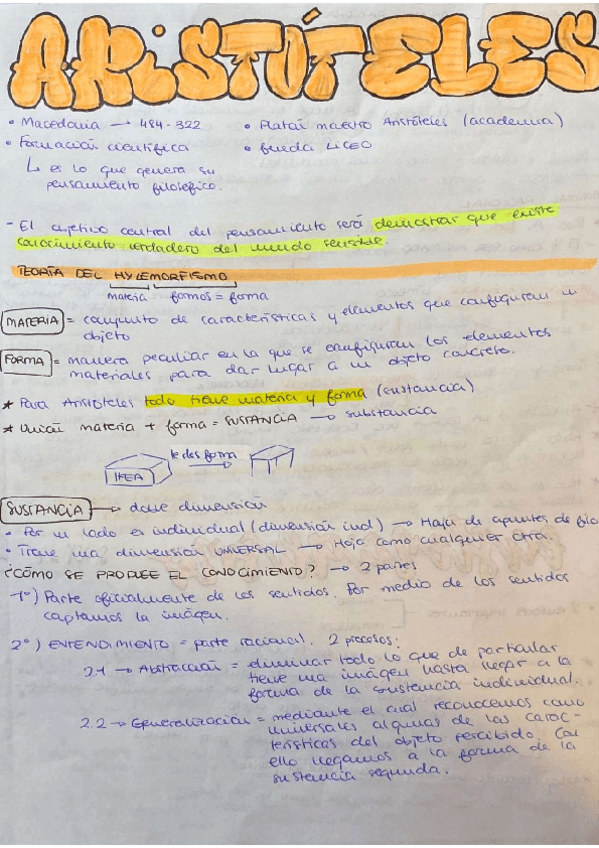 ARISTÓTELES
• Macedonia → 484-322
• Platón maestro Aristóteles (academia)
• Formación científica
• funda LICEO
↳ es lo que genera su
pensamiento filosófico.
- El objetivo central del pensamiento será demostrar que existe
conocimiento verdadero del mundo sensible.
TEORÍA DEL HYLEMORFISMO
materia formos = forma
MATERIA = conjunto de características y elementos que configuran un
objeto
FORMA = manera peculiar en la que se configuran los elementos
materiales para dar lugar a un objeto concreto.
* Para Aristóteles todo tiene materia y forma (sustancia)
* Unión materia + forma = SUSTANCIA → substancia
IKEA le das forma
SUSTANCIA → doble dimensión
• Por un lado es individual (dimensión ind) → Hoja de apuntes de filo
• Tiene una dimensión UNIVERSAL → Hoja como cualquier otra.
¿CÓMO SE PRODUCE EL CONOCIMIENTO? → 2 partes
1º) Parte oficialmente de los sentidos. Por medio de los sentidos
captamos la imágen.
2º) ENTENDIMIENTO = parte racional. 2 procesos:
2.1 → Abstracción = eliminar todo lo que de particular
tiene una imágen hasta llegar a la
forma de la sustancia individual.
2.2 → Generalización = mediante el cual reconocemos como
universales algunas de las carac-
terísticas del objeto percibido. Con
ello llegamos a la forma de la
sustancia segunda.